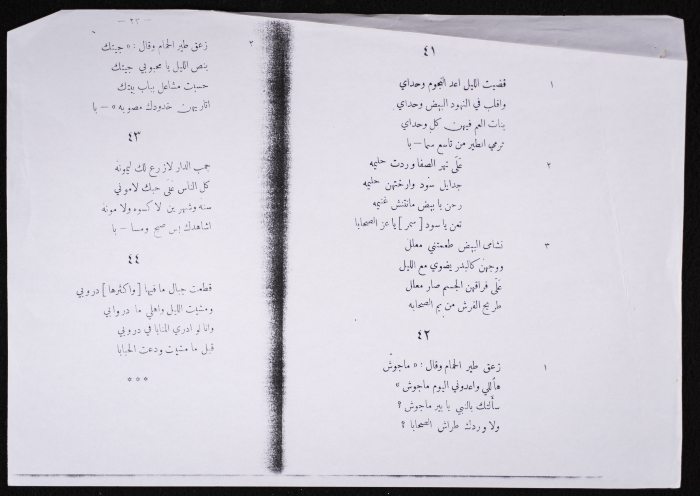 ٤١
١ قضيت الليل اعد النجوم وحداي
واقلب في النهود البيض وحداي
بنات العم فيهن كل وحداي
ترمي الطير من تاسع سما — با
٢ عَلَى نهر الصفا وردت حليمه
جدايل سود وارختهن حليمه
رحن يا بيض مانتش غنيمه
تعن يا سود [ سمر ] يا عز الصحابا
٣ نشامى البيض طعمتني معلل
ووجهن كالبدر يضوي مع الليل
عَلَى فراقهن الجسم صار معلل
طريح الفرش من يم الصحابه
٤٢
١ زعق طير الحمام وقال : « ماجوش
هاللي واعدوني اليوم ماجوش »
سألتك بالنبي يا بير ماجوش ؟
ولا وردك طراش الصحابا ؟
— ٢٣ —
٢ زعق طير الحمام وقال : « جيتك
بنص الليل يا محبوبي جيتك
حسبت مشاعل بباب بيتك
اثاريهن خدودك مصوبه » — با
٤٣
جمب الدار لازرع لك ليمونه
كل الناس عَلَى حبك لاموني
سنه وشهرين لا كسوه ولا مونه
اشاهدك بس صبح ومسا — با
٤٤
قطعت جبال ما فيها [ واكثرها ] دروبي
ومشيت الليل واهلي ما دروابي
وانا لو ادري المنايا في دروبي
قبل ما مشيت ودعت الحبابا
* * *